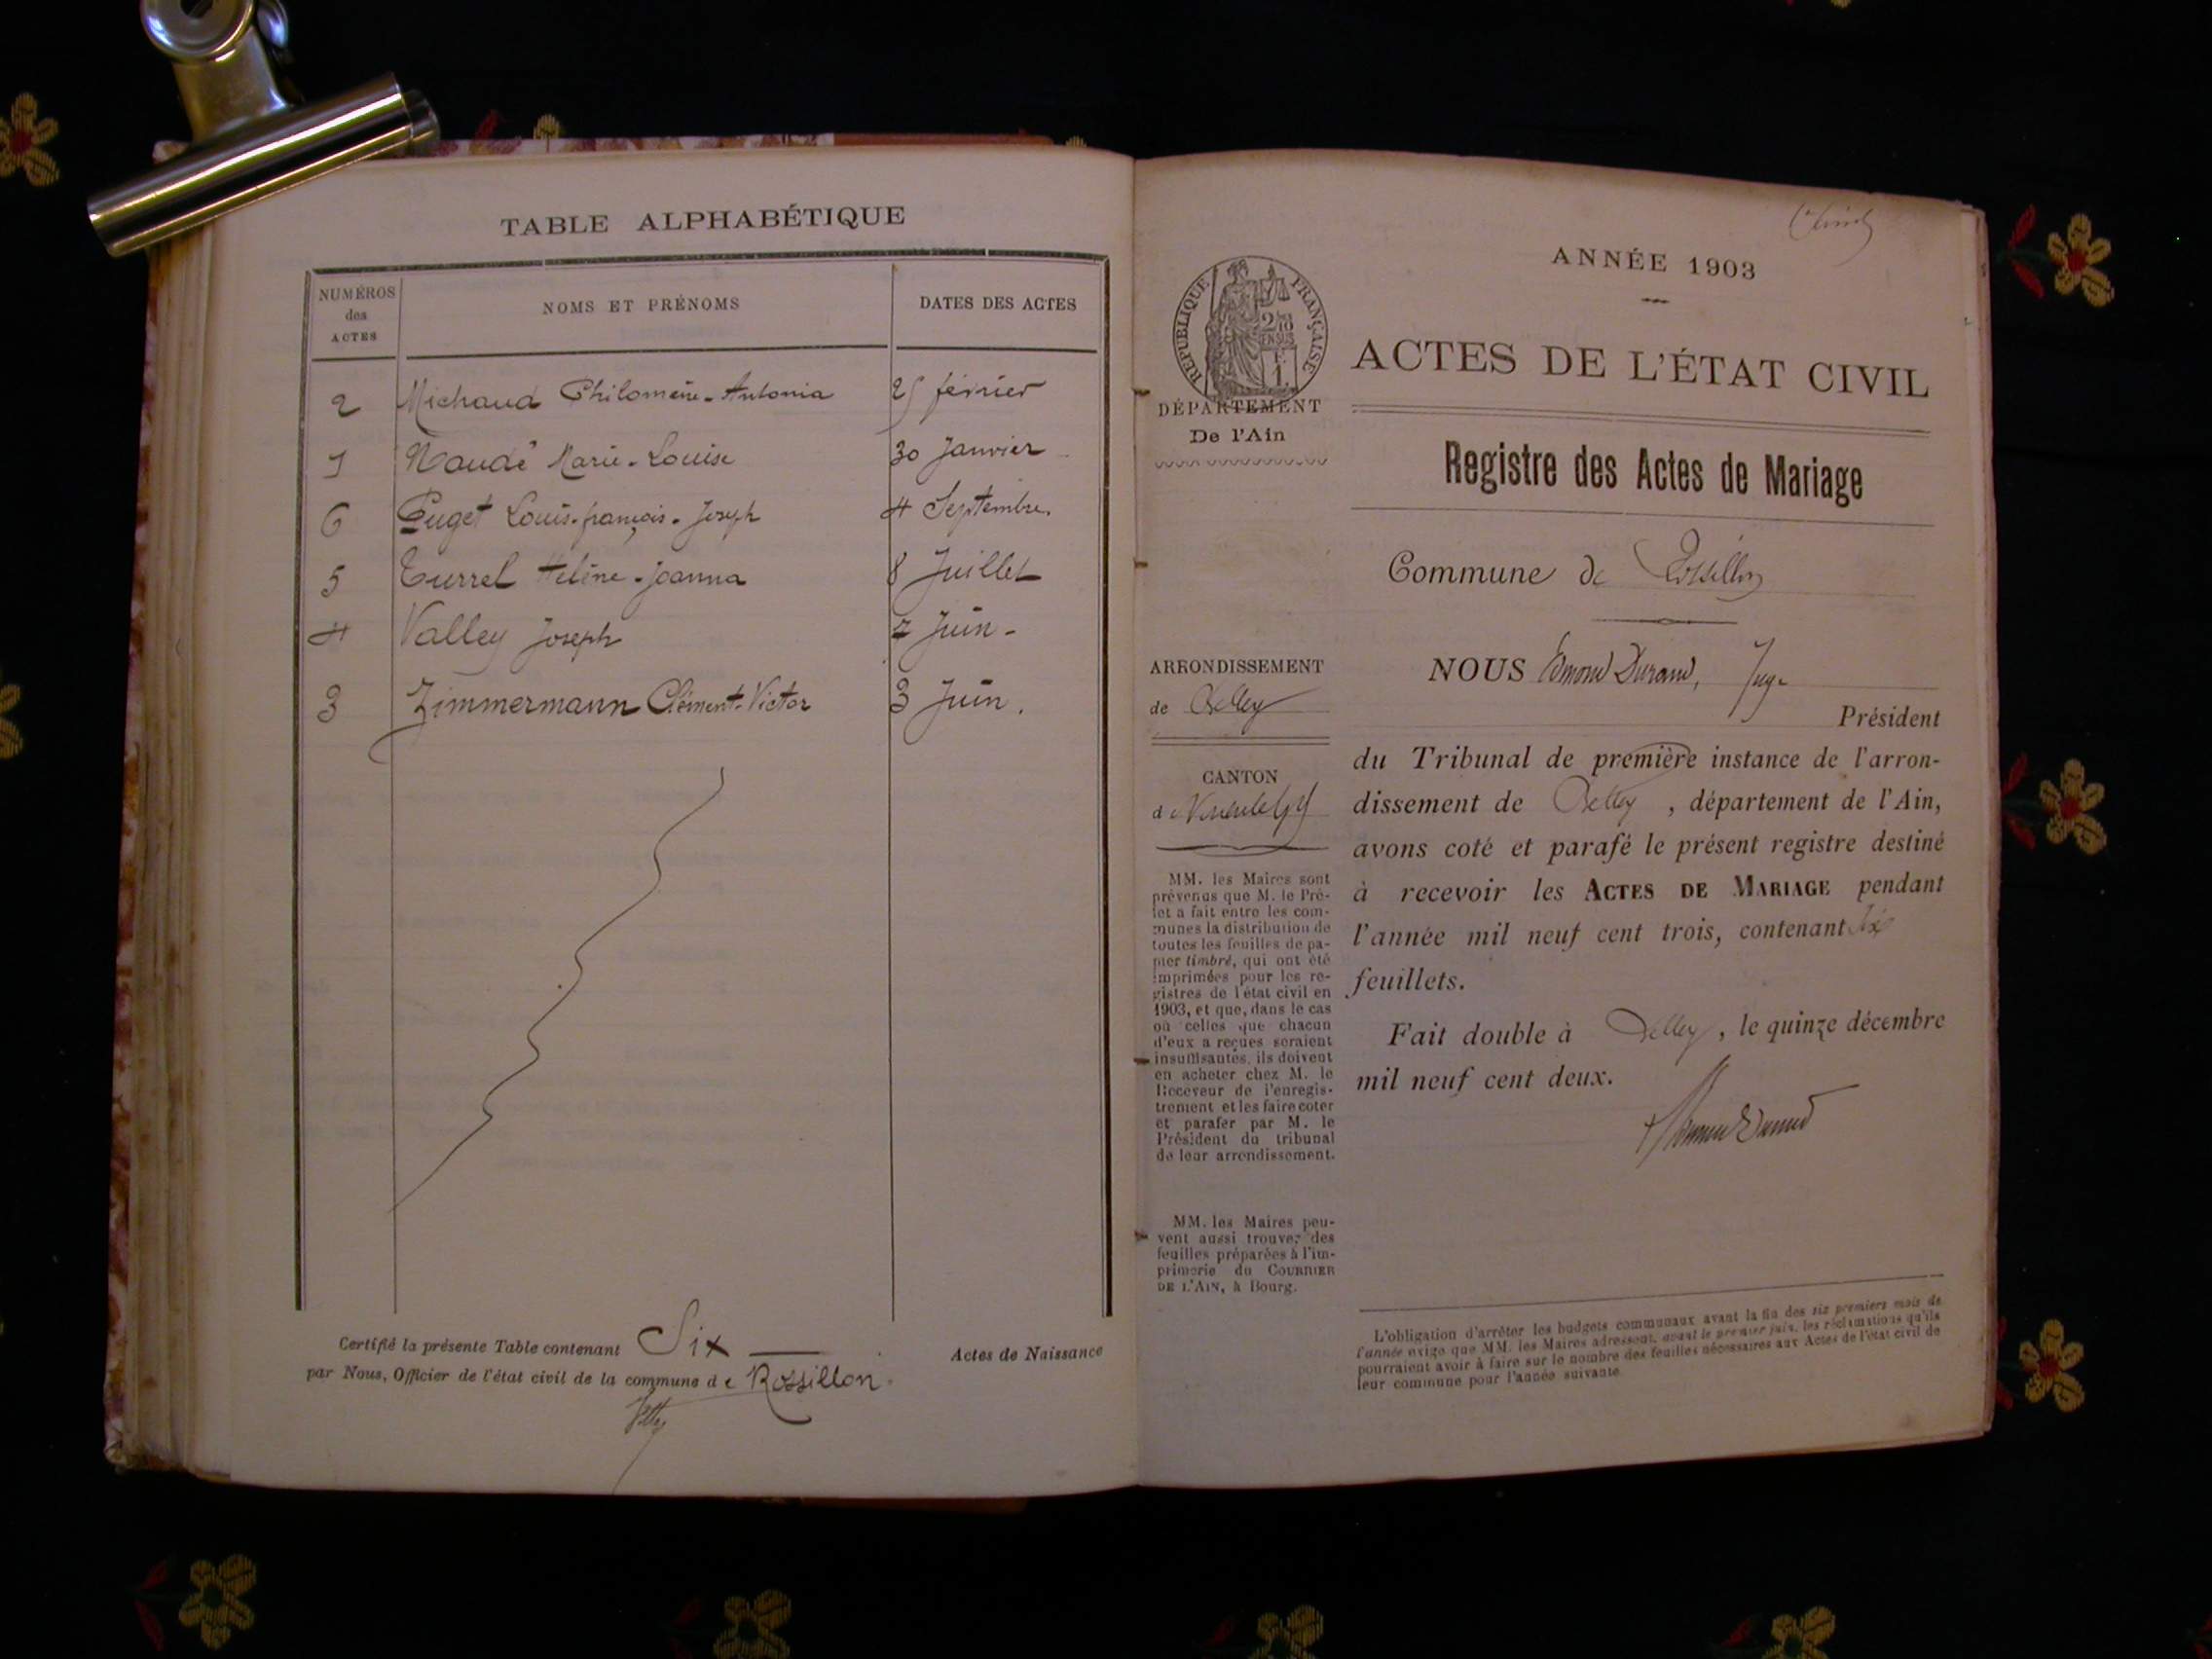 TABLE ALPHABÉTIQUE
NUMÉROS des ACTES
NOMS ET PRÉNOMS
DATES DES ACTES
2 Michaud Philomène-Antonia 25 février
1 Naudé Marie-Louise 30 Janvier
6 Puget Louis-françois-Joseph 4 Septembre.
5 Turrel Hélène-Joanna 8 Juillet
4 Valley Joseph 7 Juin -
3 Zimmermann Clément-Victor 3 Juin.
Certifié la présente Table contenant Six Actes de Naissance
par Nous, Officier de l'état civil de la commune de Rossillon.
ANNÉE 1903
RÉPUBLIQUE FRANÇAISE
2/10 EN SUS
F. 1.
DÉPARTEMENT
De l'Ain
ARRONDISSEMENT
de Belley
CANTON
de Virieu le Gd
MM. les Maires sont
prévenus que M. le Pré-
fet a fait entre les com-
munes la distribution de
toutes les feuilles de pa-
pier timbré, qui ont été
imprimées pour les re-
gistres de l'état civil en
1903, et que, dans le cas
où celles que chacun
d'eux a reçues seraient
insuffisantes, ils doivent
en acheter chez M. le
Receveur de l'enregis-
trement et les faire coter
et parafer par M. le
Président du tribunal
de leur arrondissement.
MM. les Maires peu-
vent aussi trouver des
feuilles préparées à l'im-
primerie du COURRIER
DE L'AIN, à Bourg.
ACTES DE L'ÉTAT CIVIL
Registre des Actes de Mariage
Commune de Rossillon
NOUS Edmond Durand, Juge
Président
du Tribunal de première instance de l'arron-
dissement de Belley, département de l'Ain,
avons coté et parafé le présent registre destiné
à recevoir les ACTES DE MARIAGE pendant
l'année mil neuf cent trois, contenant six
feuillets.
Fait double à Belley, le quinze décembre
mil neuf cent deux.
L'obligation d'arrêter les budgets communaux avant la fin des six premiers mois de
l'année exige que MM. les Maires adressent, avant le premier juin, les réclamations qu'ils
pourraient avoir à faire sur le nombre des feuilles nécessaires aux Actes de l'état civil de
leur commune pour l'année suivante.